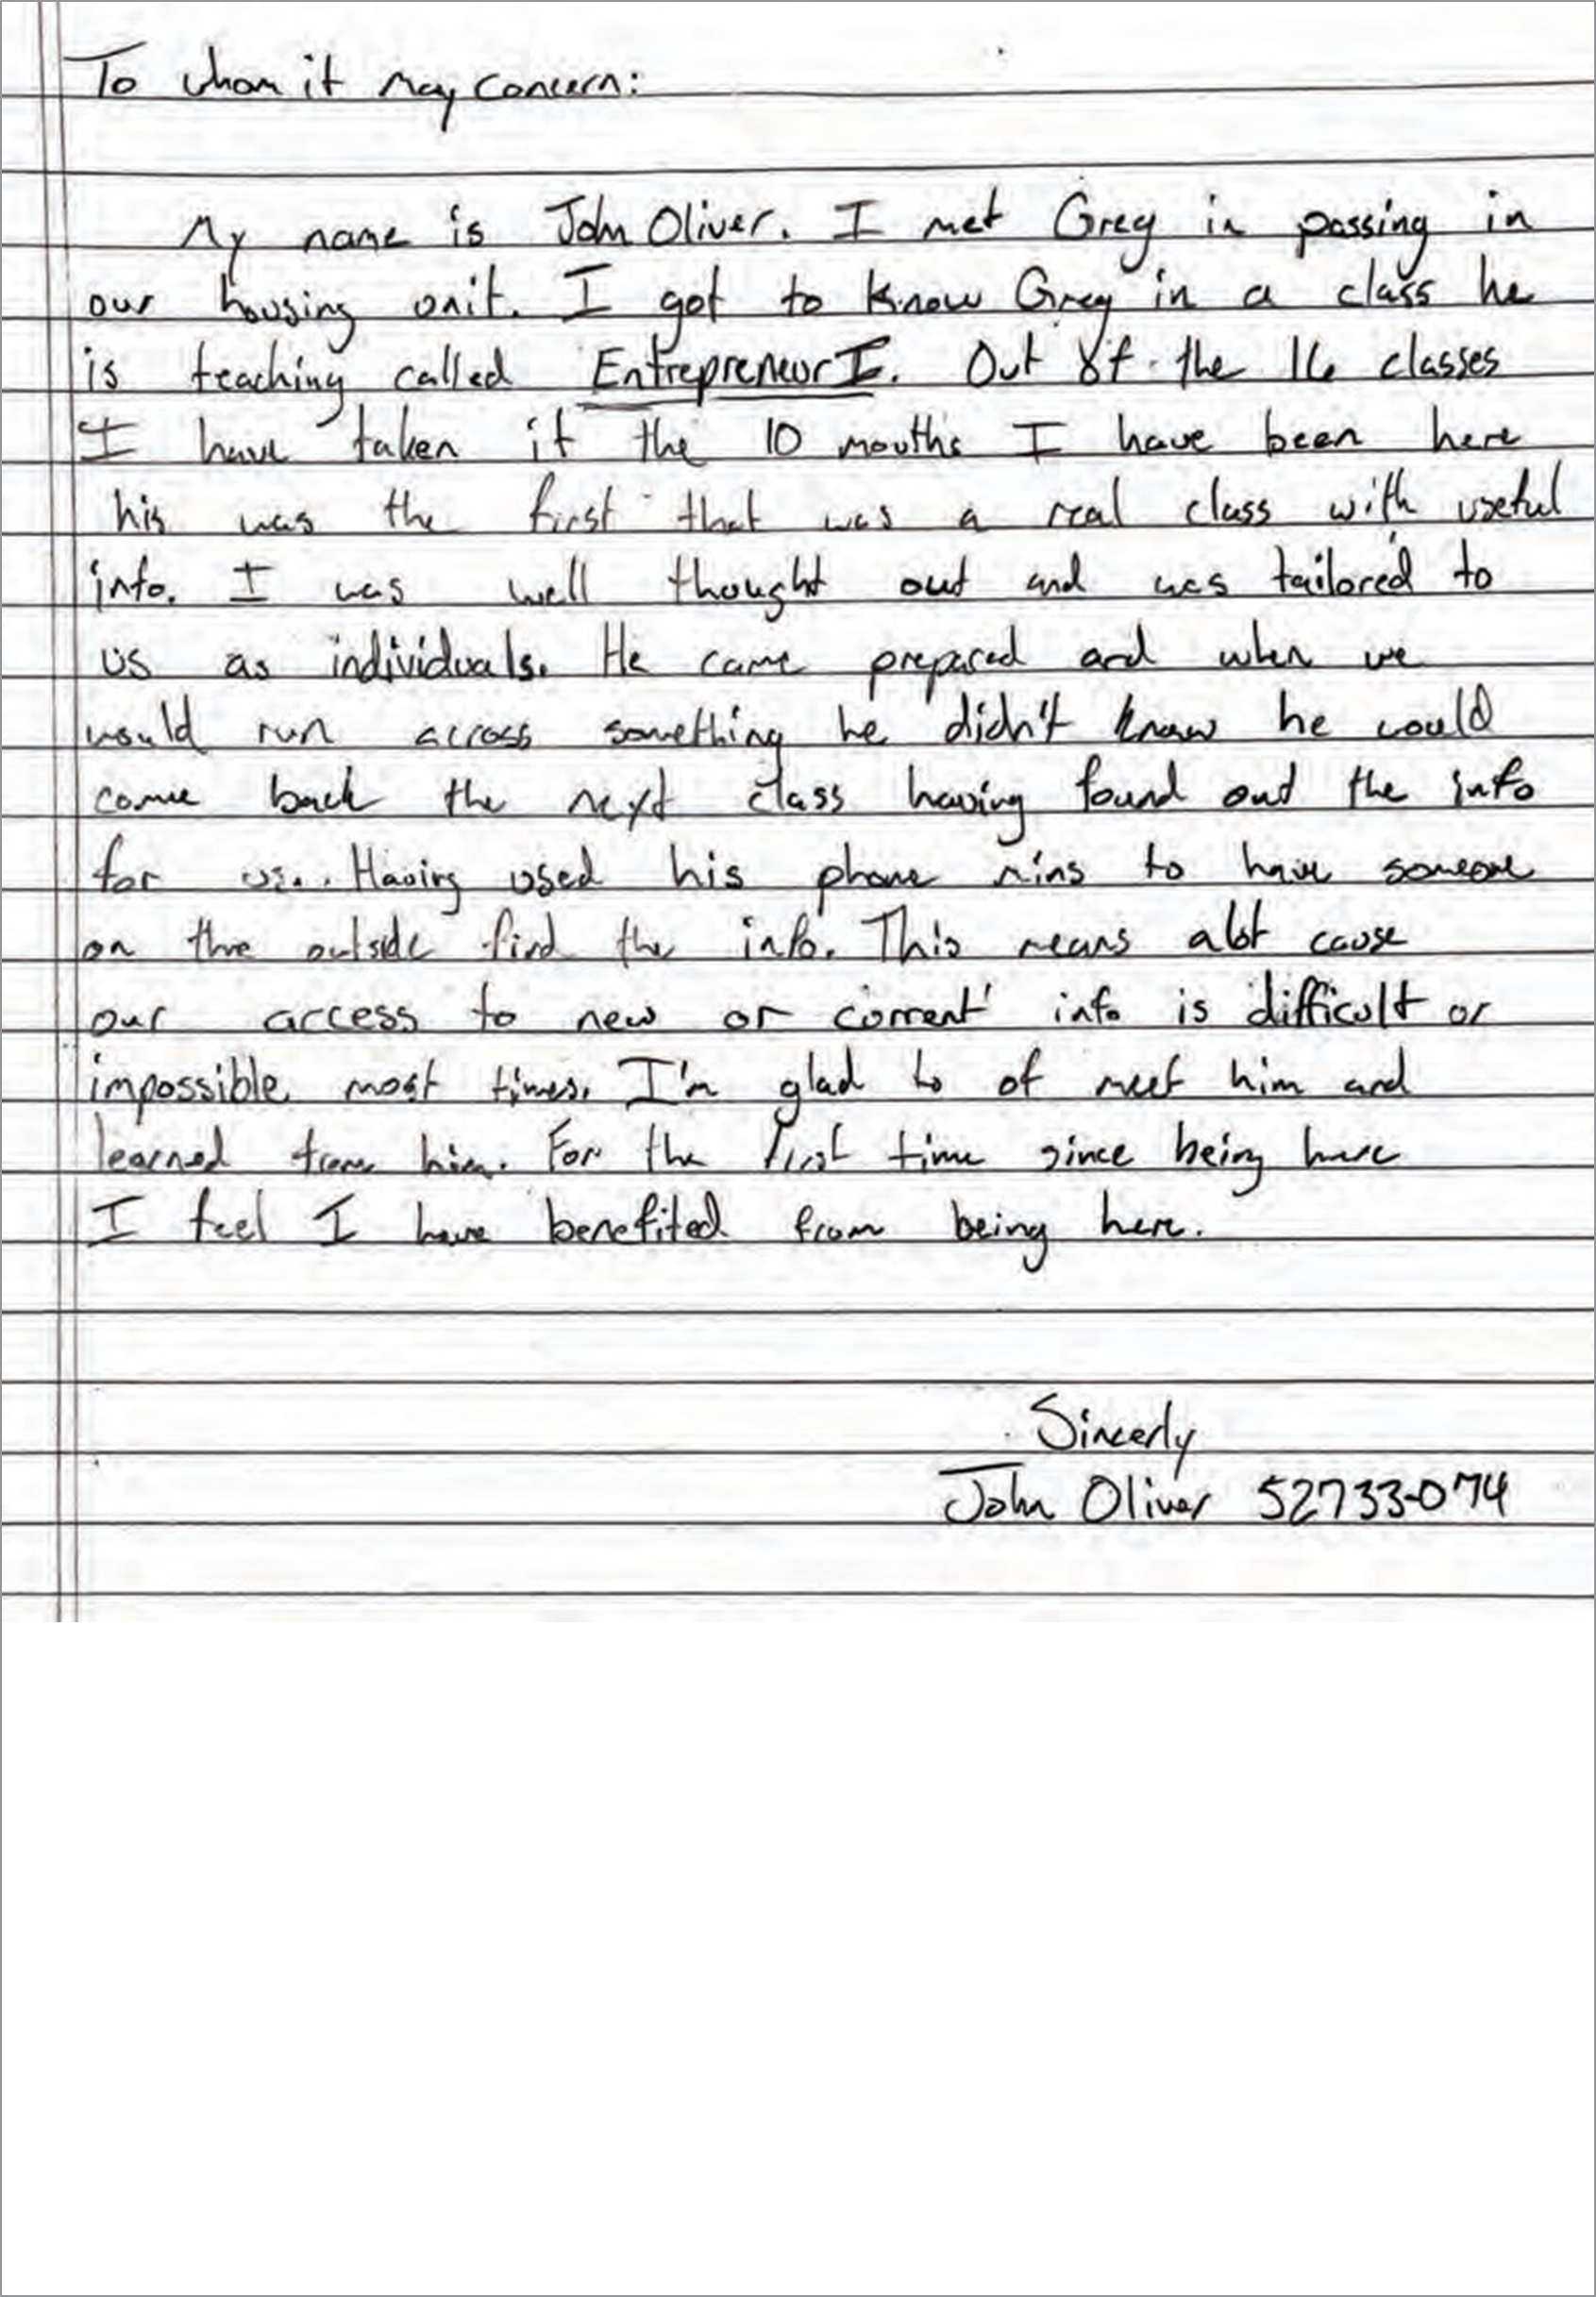 To whom it may concern:
My name is John Oliver. I met Greg in passing in
our housing unit. I got to know Greg in a class he
is teaching called Entrepreneur I. Out of the 16 classes
I have taken it the 10 mouths I have been here
his was the first that was a real class with useful
info. I was well thought out and was tailored to
us as individuals. He came prepared and when we
would run across something he didn't know he would
come back the next class having found out the info
for us. Having used his phone mins to have someone
on thre outside find the info. This means alot cause
our access to new or corrent info is difficult or
impossible most times. I'm glad to of meet him and
learned from him. For the first time since being here
I feel I have benefited from being here.
Sincerly
John Oliver 52733-074